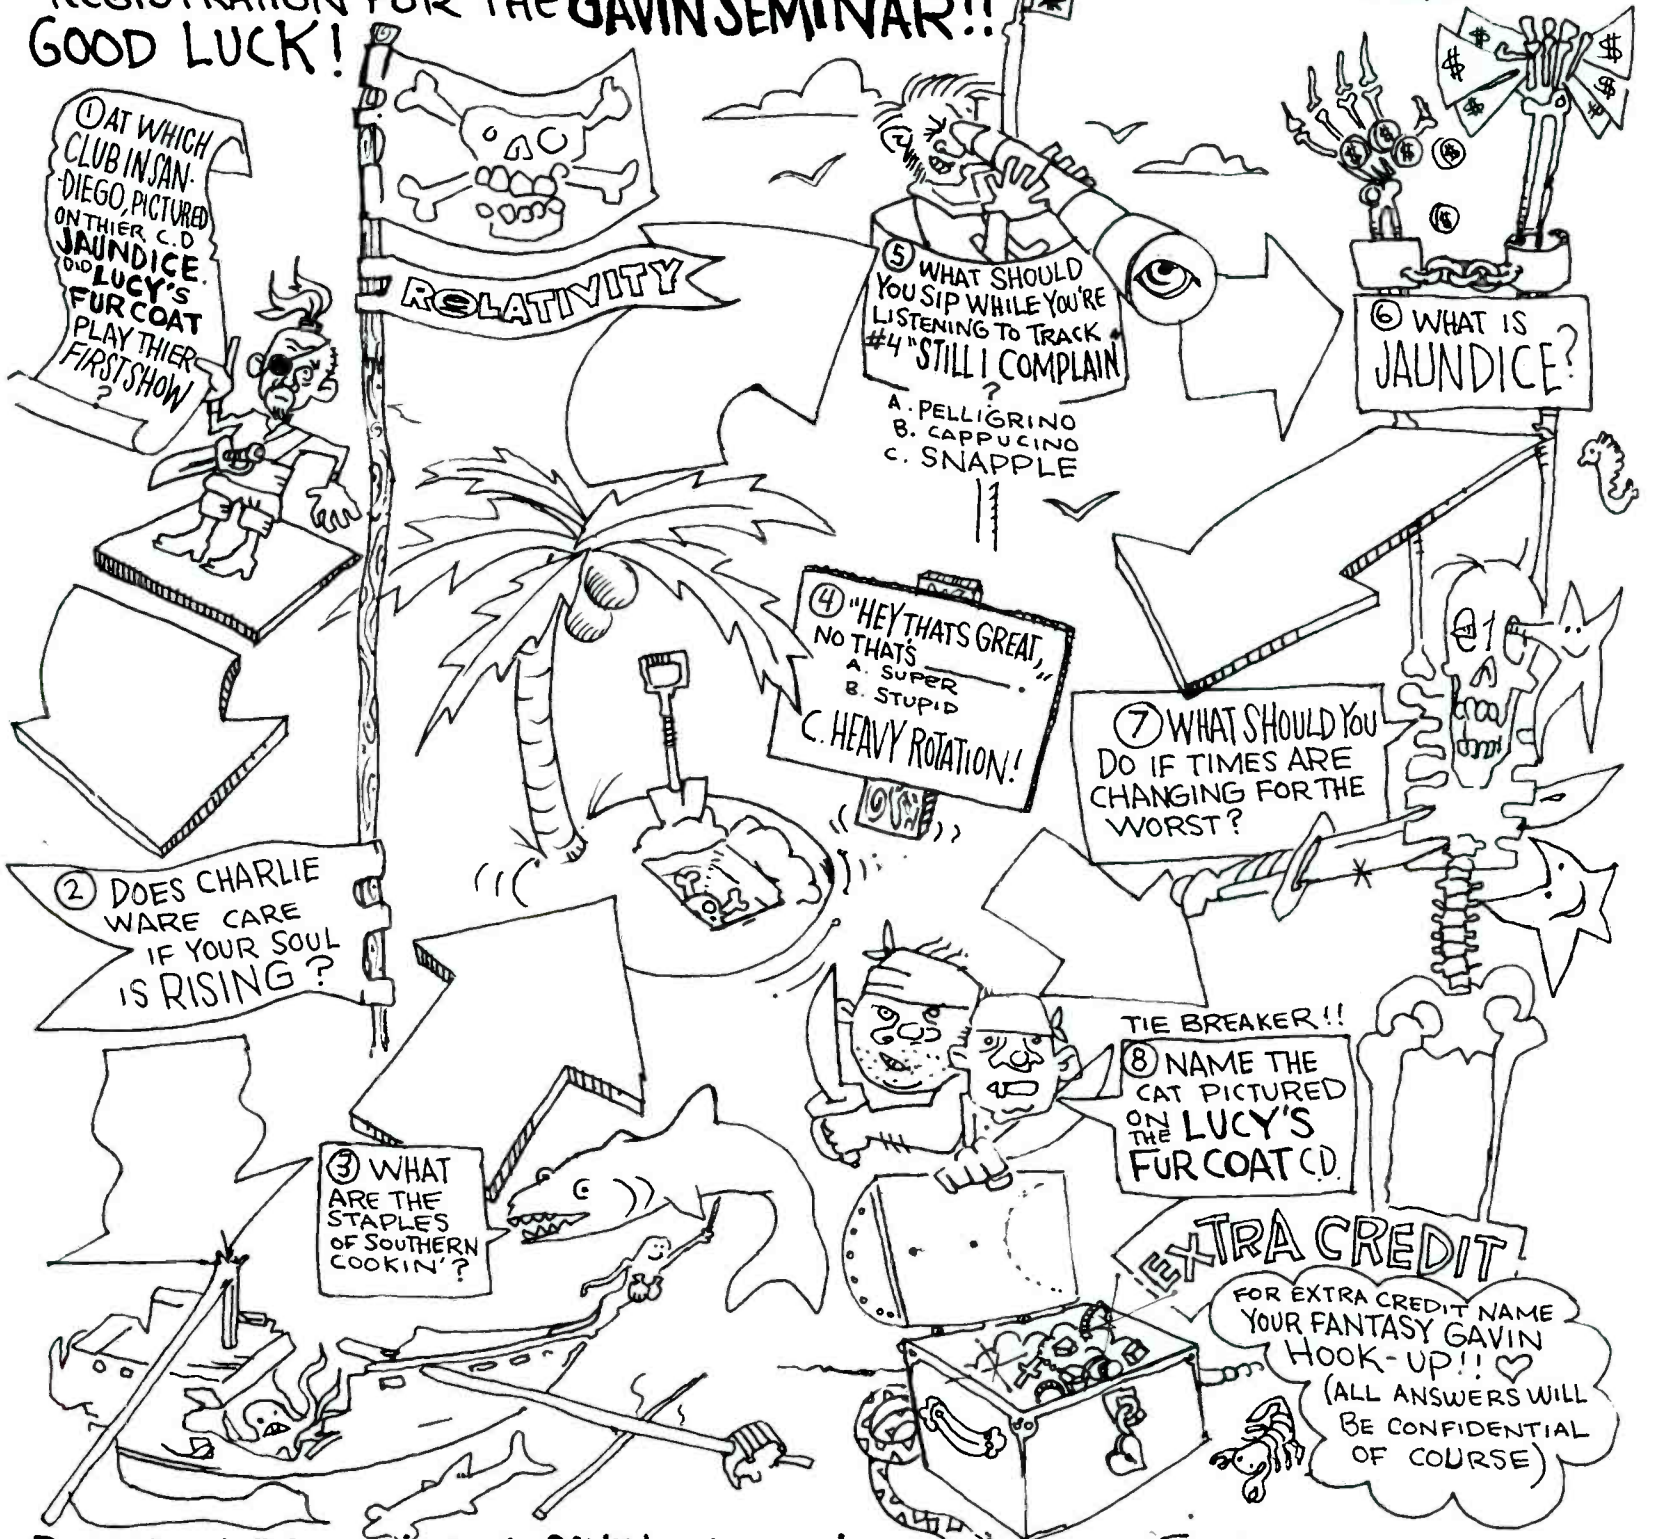 REGISTRATION FOR THE GAVIN SEMINAR!!
GOOD LUCK!
① AT WHICH
CLUB IN SAN-
DIEGO, PICTURED
ON THIER C.D
JAUNDICE.
DID LUCY'S
FUR COAT
PLAY THIER
FIRST SHOW
?
RELATIVITY
② DOES CHARLIE
WARE CARE
IF YOUR SOUL
IS RISING?
③ WHAT
ARE THE
STAPLES
OF SOUTHERN
COOKIN'?
④ "HEY THATS GREAT,
NO THAT'S ______."
A. SUPER
B. STUPID
C. HEAVY ROTATION!
⑤ WHAT SHOULD
YOU SIP WHILE YOU'RE
LISTENING TO TRACK
#4 "STILL I COMPLAIN"
?
A. PELLIGRINO
B. CAPPUCINO
C. SNAPPLE
⑥ WHAT IS
JAUNDICE?
⑦ WHAT SHOULD YOU
DO IF TIMES ARE
CHANGING FOR THE
WORST?
TIE BREAKER!!
⑧ NAME THE
CAT PICTURED
ON THE LUCY'S
FUR COAT C.D.
EXTRA CREDIT!
FOR EXTRA CREDIT NAME
YOUR FANTASY GAVIN
HOOK-UP!! ♡
(ALL ANSWERS WILL
BE CONFIDENTIAL
OF COURSE)